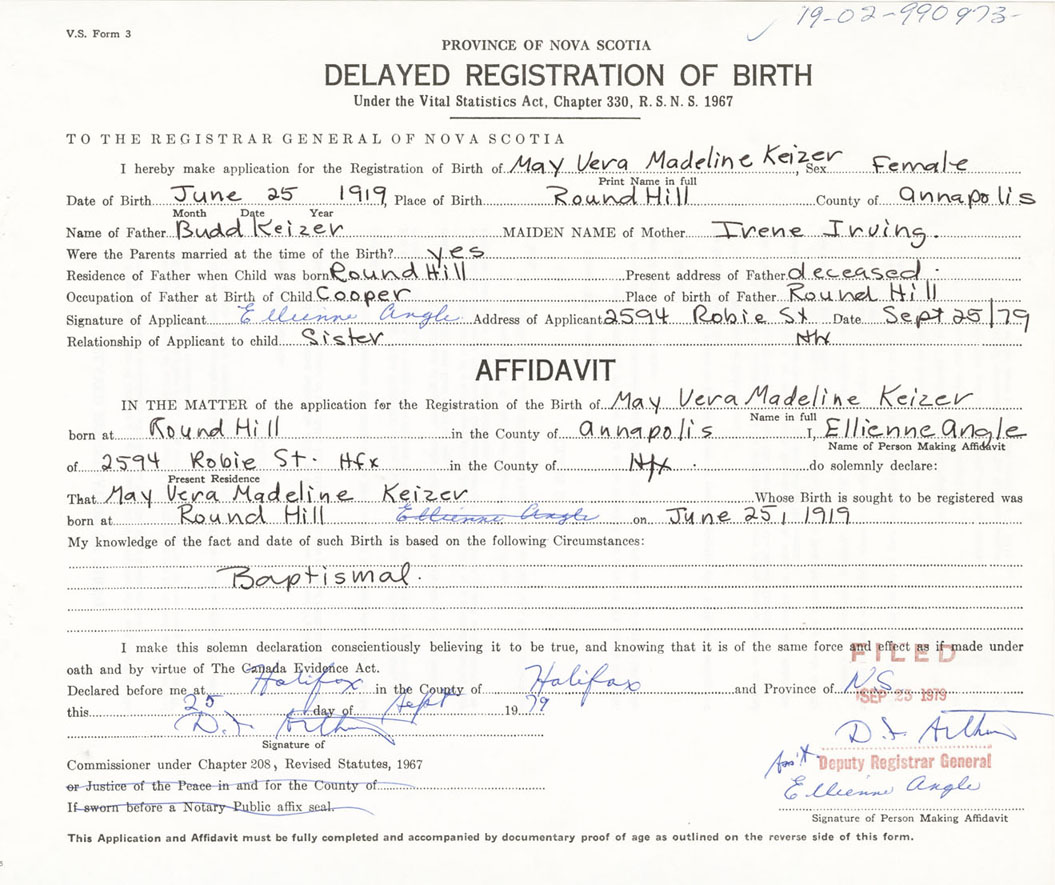 19-02-990973-
V.S. Form 3
PROVINCE OF NOVA SCOTIA
DELAYED REGISTRATION OF BIRTH
Under the Vital Statistics Act, Chapter 330, R.S.N.S. 1967
TO THE REGISTRAR GENERAL OF NOVA SCOTIA
I hereby make application for the Registration of Birth of May Vera Madeline Keizer, Sex Female
Print Name in full
Date of Birth June 25 1919, Place of Birth Round Hill County of Annapolis
Month Date Year
Name of Father Budd Keizer MAIDEN NAME of Mother Irene Irving.
Were the Parents married at the time of the Birth? yes
Residence of Father when Child was born Round Hill Present address of Father deceased.
Occupation of Father at Birth of Child Cooper Place of birth of Father Round Hill
Signature of Applicant Ellienne Angle Address of Applicant 2594 Robie St Date Sept 25/79
Relationship of Applicant to child Sister Hfx
AFFIDAVIT
IN THE MATTER of the application for the Registration of the Birth of May Vera Madeline Keizer
Name in full
born at Round Hill in the County of Annapolis I, Ellienne Angle
Name of Person Making Affidavit
of 2594 Robie St. Hfx in the County of Hfx. do solemnly declare:
Present Residence
That May Vera Madeline Keizer Whose Birth is sought to be registered was
born at Round Hill Ellienne Angle on June 25, 1919
My knowledge of the fact and date of such Birth is based on the following Circumstances:
Baptismal.
I make this solemn declaration conscientiously believing it to be true, and knowing that it is of the same force and effect as if made under
oath and by virtue of The Canada Evidence Act.
FILED
Declared before me at Halifax in the County of Halifax and Province of NS
SEP 25 1979
this 25 day of Sept 1979
D.F. Arthur
Signature of
D.F. Arthur
Commissioner under Chapter 208, Revised Statutes, 1967
Ass't Deputy Registrar General
or Justice of the Peace in and for the County of
Ellienne Angle
If sworn before a Notary Public affix seal.
Signature of Person Making Affidavit
This Application and Affidavit must be fully completed and accompanied by documentary proof of age as outlined on the reverse side of this form.